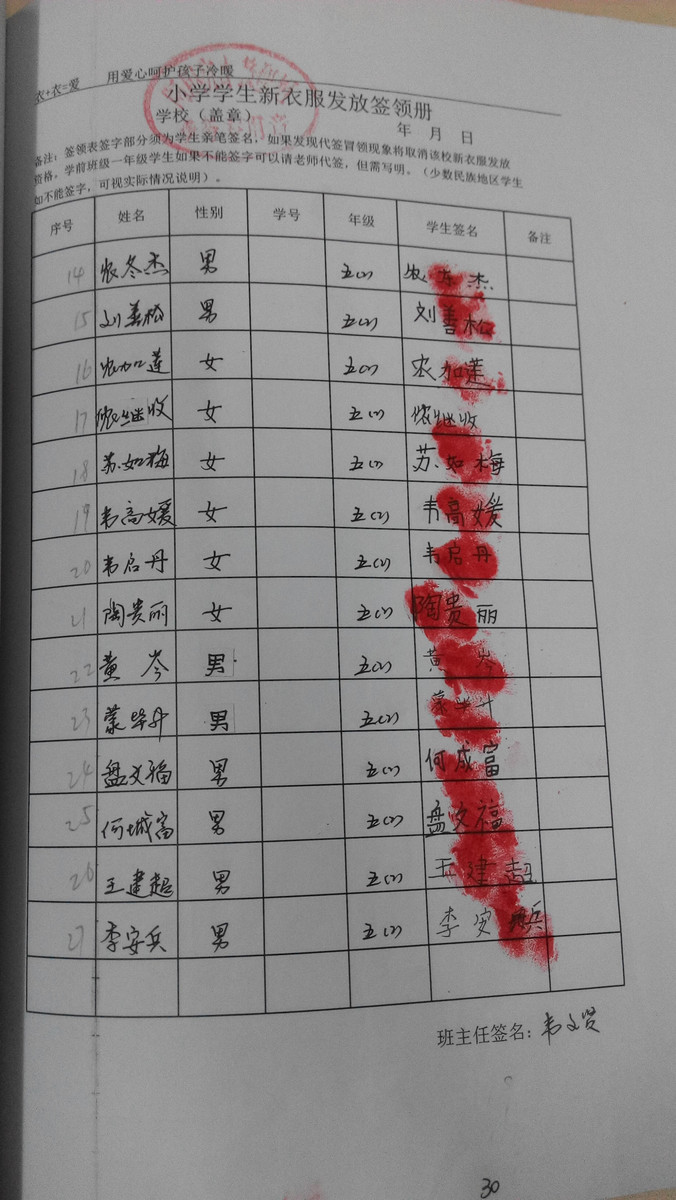 衣+衣=爱 用爱心呵护孩子冷暖
小学学生新衣服发放签领册
学校（盖章） 年 月 日
备注：签领表签字部分须为学生亲笔签名，如果发现代签冒领现象将取消该校新衣服发放
资格。学前班级一年级学生如果不能签字可以请老师代签，但需写明。（少数民族地区学生
如不能签字，可视实际情况说明）。
序号 姓名 性别 学号 年级 学生签名 备注
14 农冬杰 男 农冬杰
15 刘善松 男 刘善松
16 农加莲 女 农加莲
17 侬继收 女 侬继收
18 苏如梅 女 苏如梅
19 韦高媛 女 韦高媛
20 韦启丹 女 韦启丹
21 陶贵丽 女 陶贵丽
22 黄岑 男 黄岑
23 蒙华升 男
24 盘文福 男 何成富
25 何城富 男 盘文福
26 王建超 男 王建超
27 李安兵 男 李安兵
班主任签名：韦文贤
30